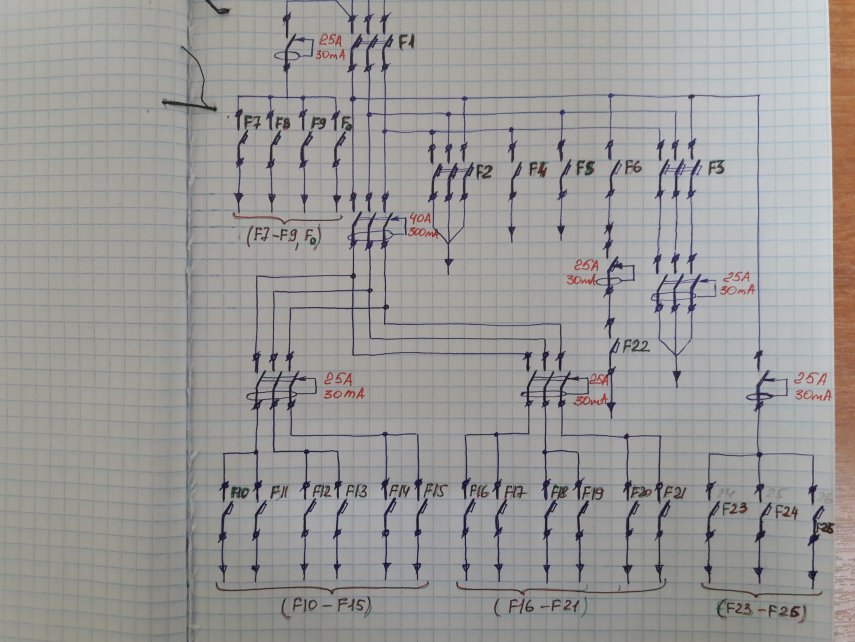 25A
30mA
F1
F7 F8 F9 F0
F2 F4 F5 F6 F3
(F7-F9, F0)
40A
300mA
25A
30mA
25A
30mA
F22
25A
30mA
25A
30mA
25A
30mA
F10 F11 F12 F13 F14 F15 F16 F17 F18 F19 F20 F21
F23 F24
(F10-F15) (F16-F21) (F23-F25)